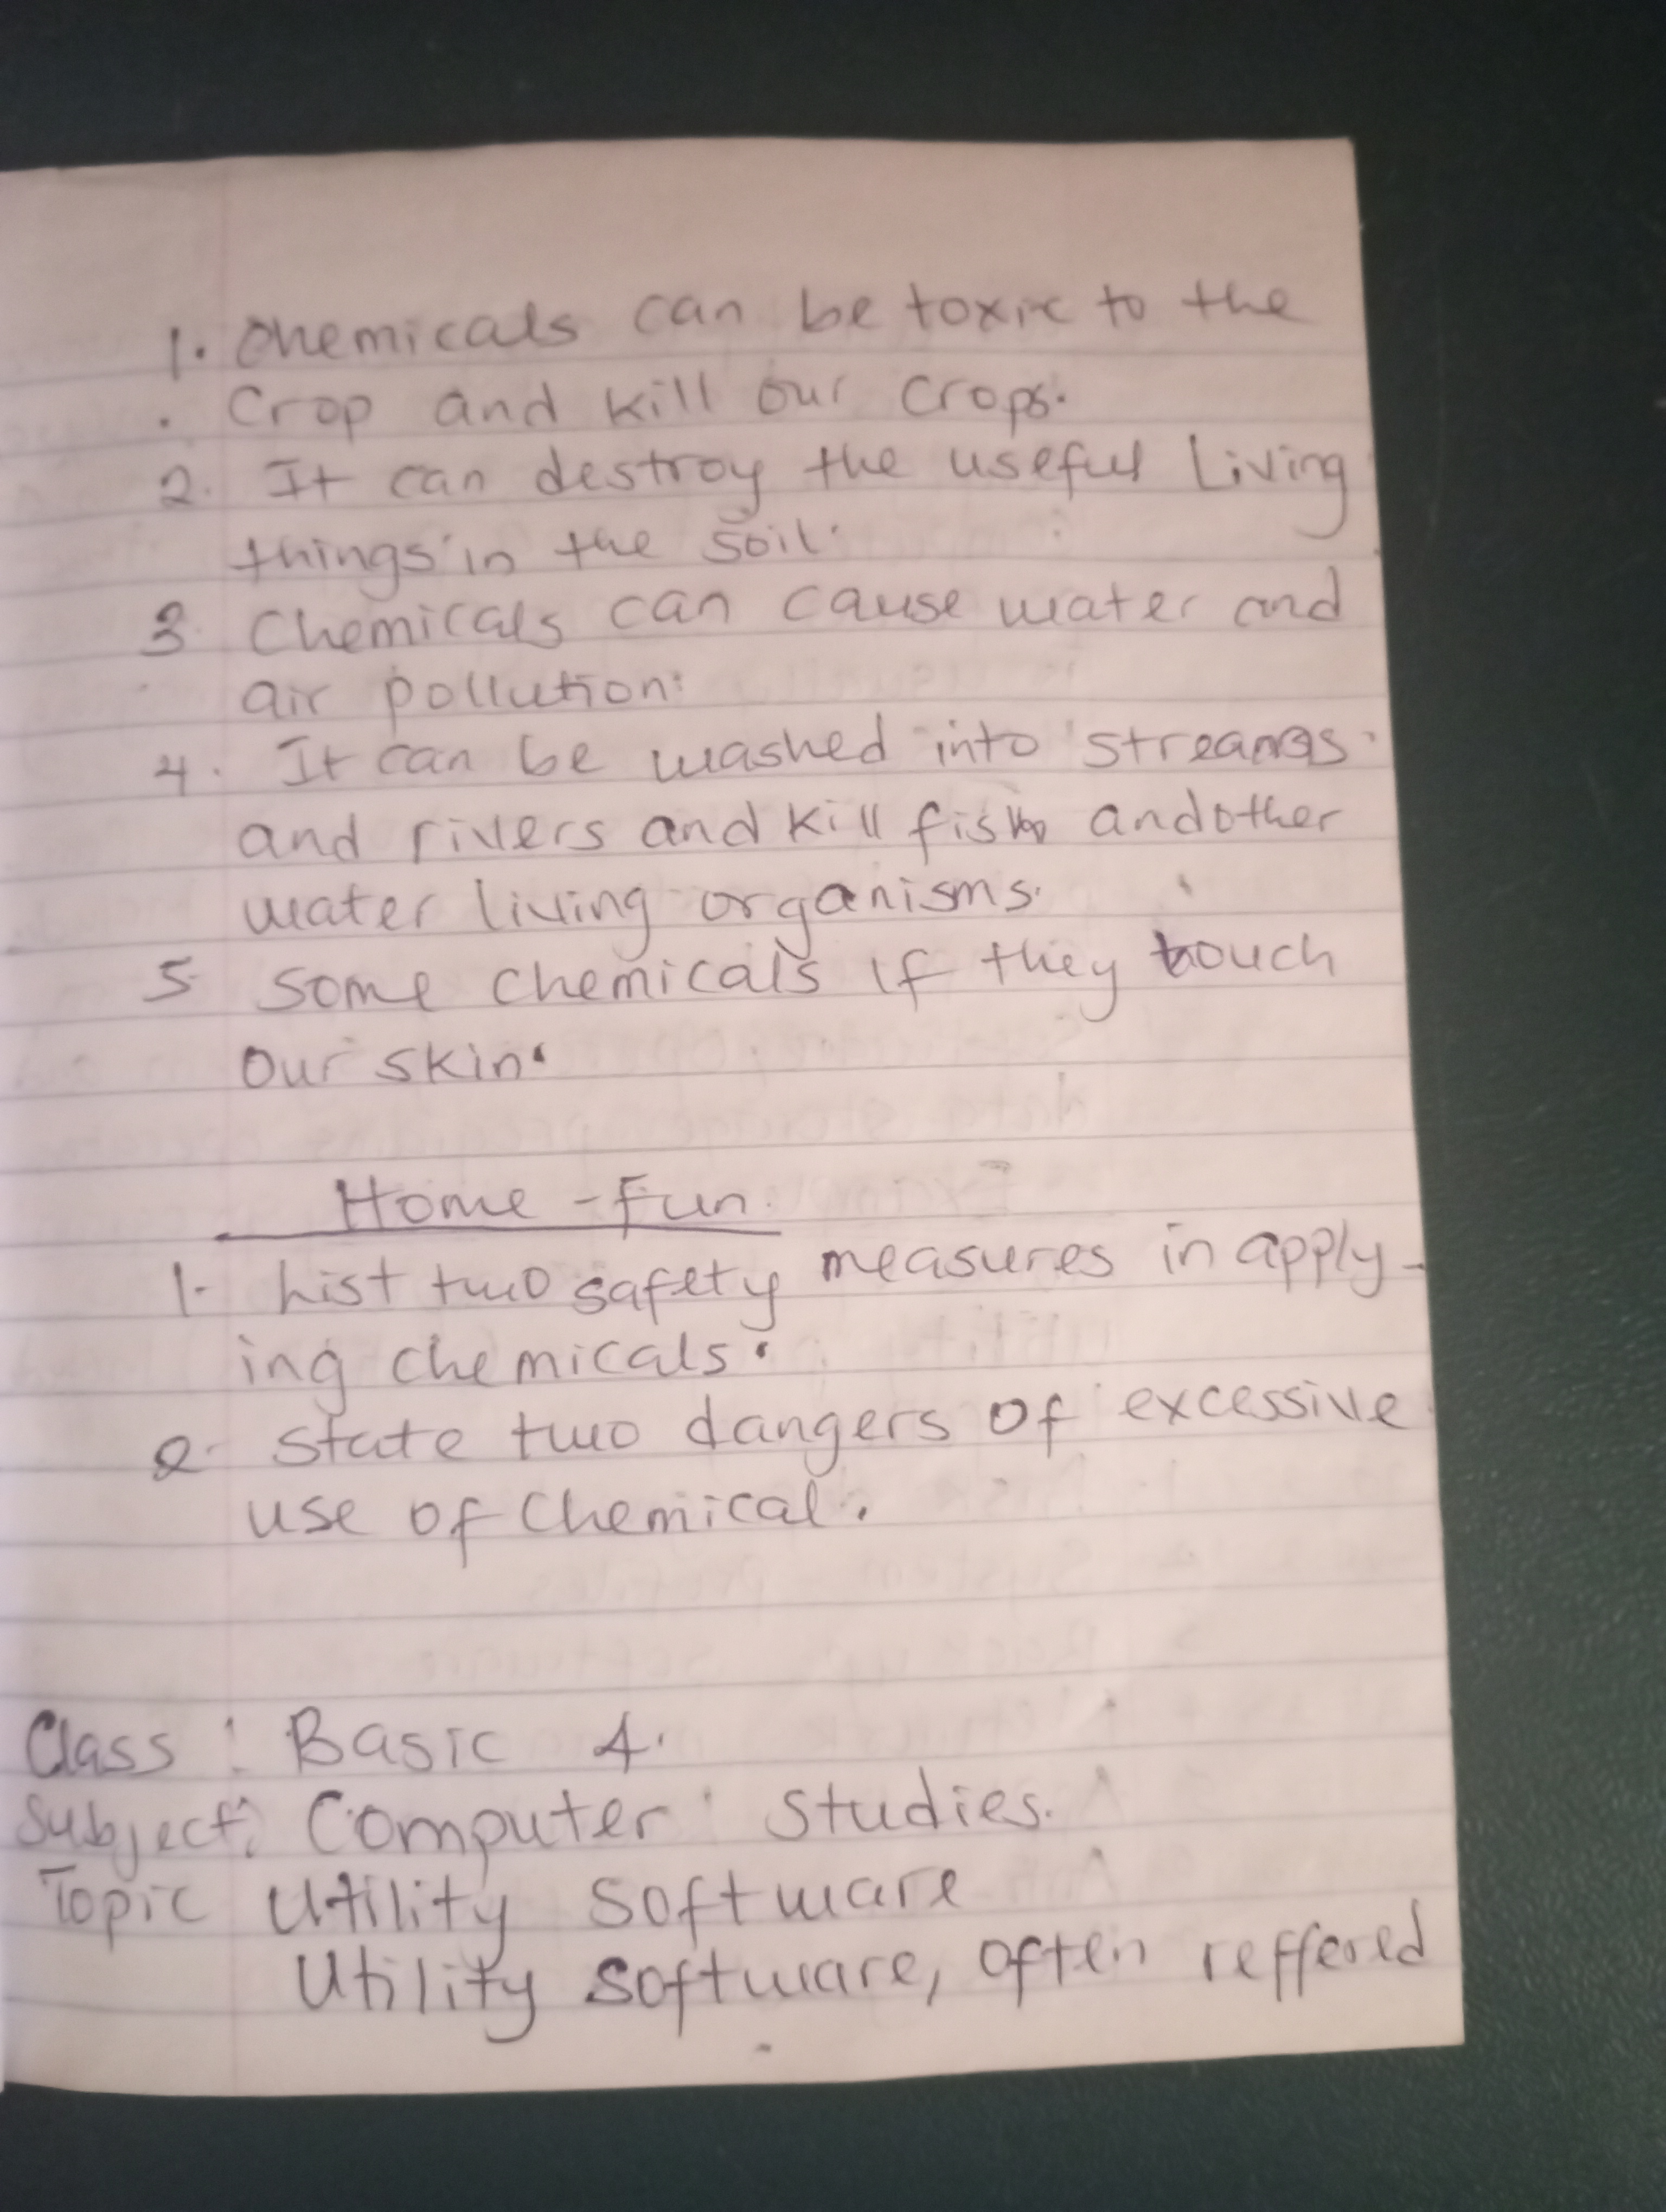 1. Chemicals can be toxic to the
. Crop and kill our crops.
2. It can destroy the useful Living
things in the soil.
3 Chemicals can cause water and
air pollution:
4. It can be washed into streams.
and rivers and kill fish and other
water living organisms.
5 Some chemicals if they touch
our skin.
Home - Fun.
1. List two safety measures in apply-
ing chemicals.
2. State two dangers of excessive
use of Chemical.
Class : Basic 4.
Subject: Computer Studies.
Topic Utility Software
Utility Software, often reffered